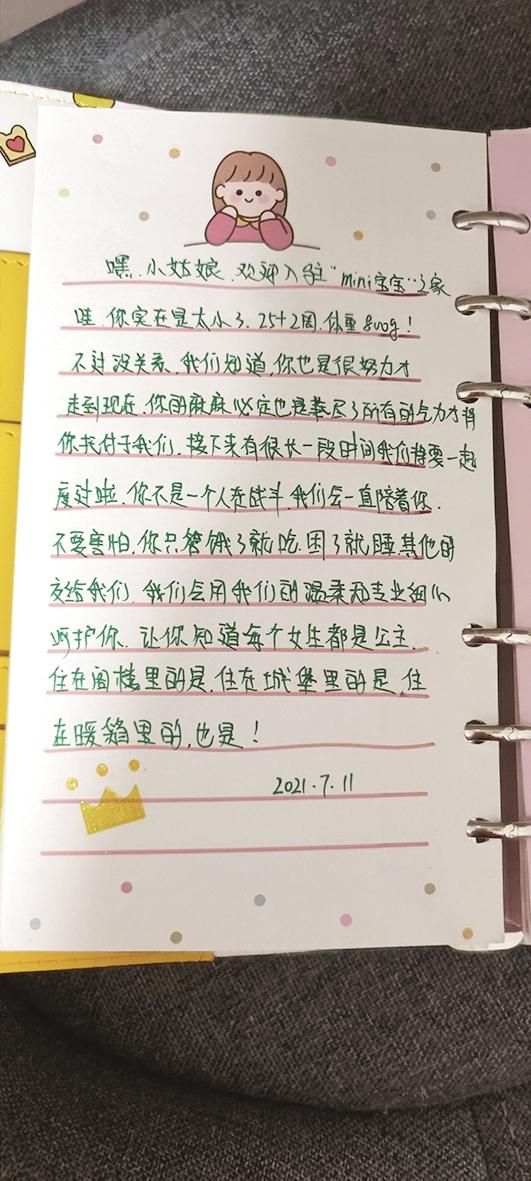 嘿.小姑娘.欢迎入住“mini宝宝”之家
哇.你实在是太小了.25+2周.体重800g！
不过没关系.我们知道,你也是很努力才
走到现在.你的麻麻必定也是耗尽了所有的气力才将
你托付于我们.接下来有很长一段时间我们将要一起
度过啦.你不是一个人在战斗.我们会一直陪着你.
不要害怕.你只管饿了就吃.困了就睡.其他的
交给我们.我们会用我们的温柔和专业细心
呵护你.让你知道每个女生都是公主.
住在阁楼里的是.住在城堡里的是.住
在暖箱里的,也是！
2021.7.11